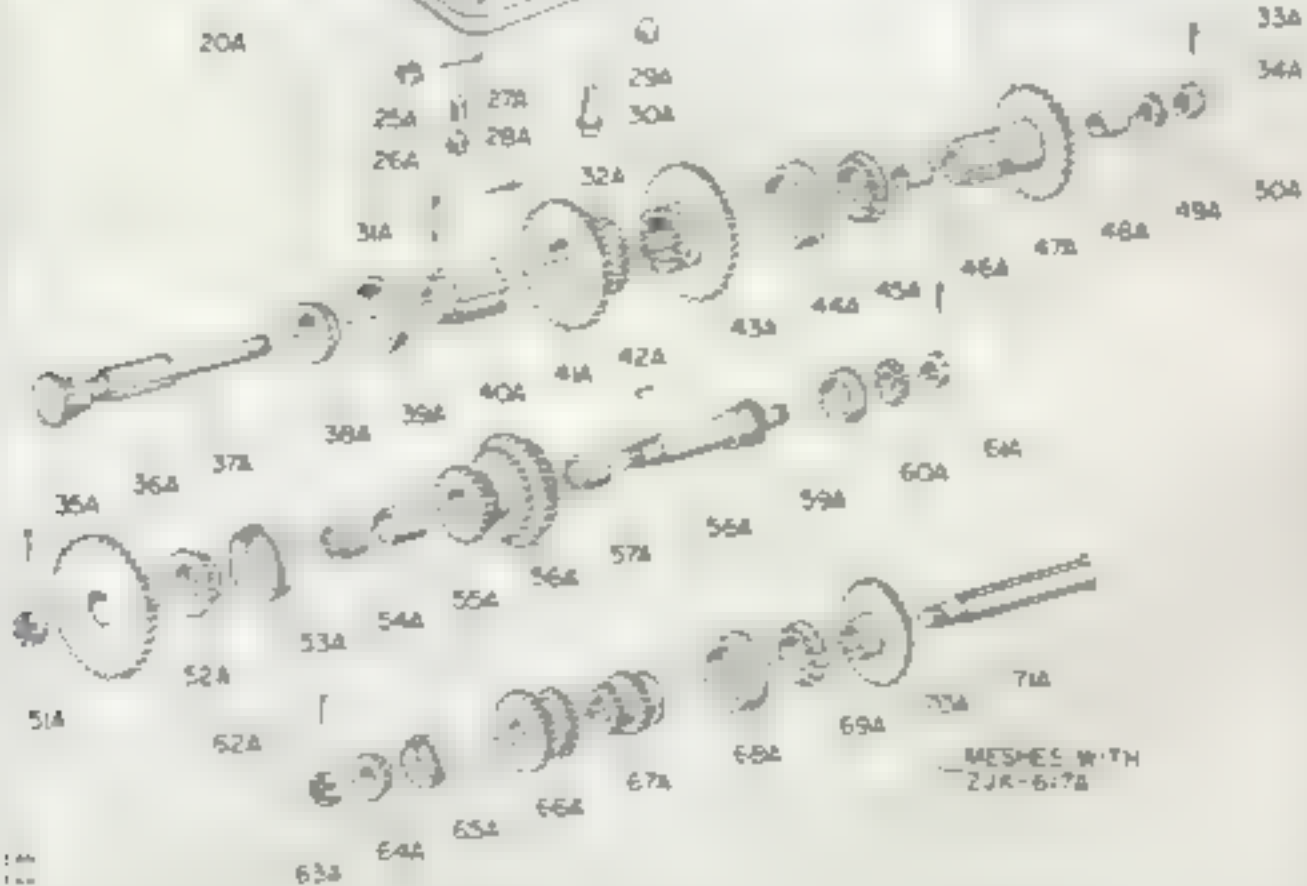 33A
20A
29A
34A
27A
25A
30A
28A
26A
32A
50A
31A
49A
48A
47A
46A
45A
44A
43A
42A
41A
40A
39A
38A
37A
36A
35A
61A
60A
59A
56A
57A
56A
55A
54A
53A
52A
51A
62A
71A
69A
68A
67A
66A
65A
64A
63A
MESHES WITH